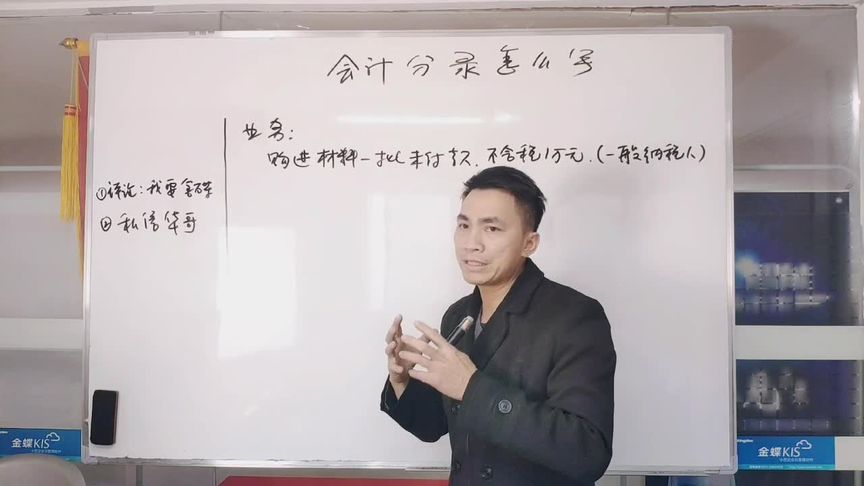 会计分录怎么写
业务:
购进材料一批未付款、不含税1万元.(一般纳税人)
①评论:我要实操
②私信华哥
金蝶KIS
金蝶KIS